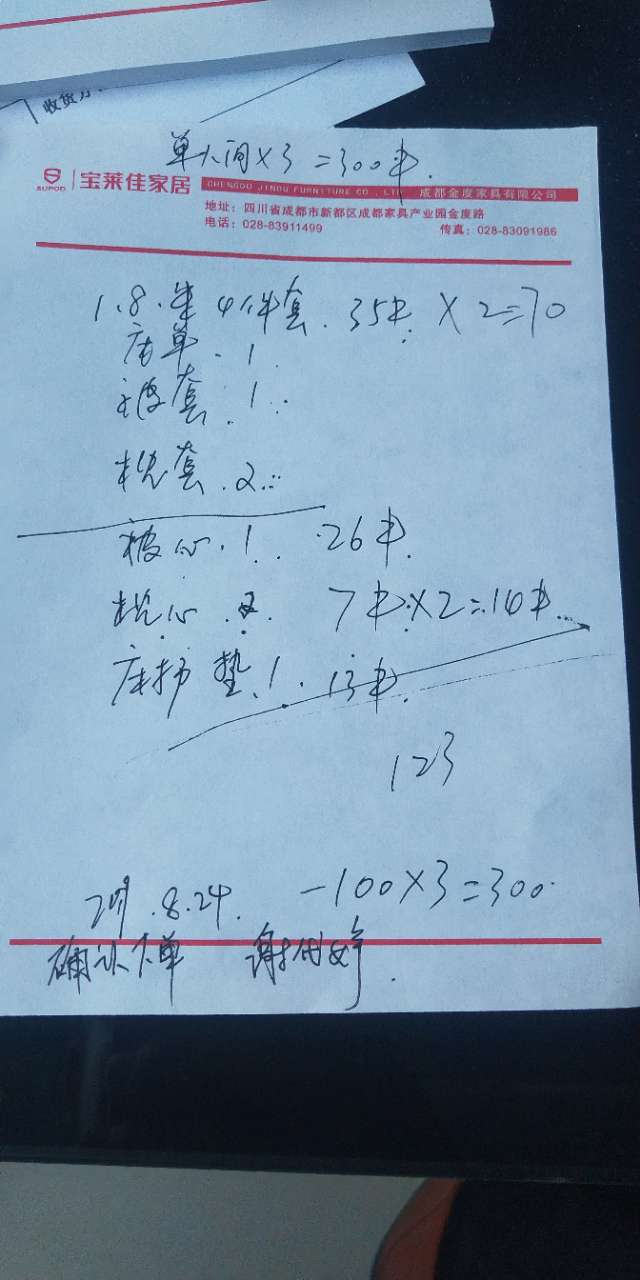 收货方
单人间×3=300中.
SUPOD 宝莱佳家居 CHENGDU JINDU FURNITURE CO., LTD 成都金度家具有限公司
地址：四川省成都市新都区成都家具产业园金度路
电话：028-83911499 传真：028-83091986
1.8.米 4件套. 35中. ×2=70
床单. 1
被套. 1.
枕套. 2.
被心. 1. 26中.
枕心. 2. 7中.×2=14中.
床护垫. 1. 13中.
123
8.24. -100×3=300.
确认下单